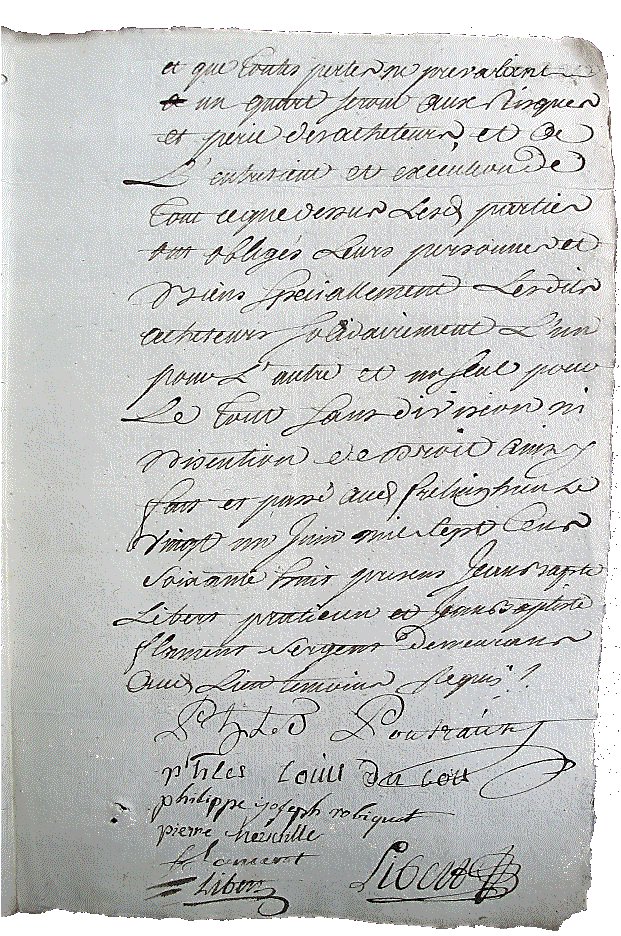 et que toutes pertes ne prevalant
a un quart seront aux risques
et peril des acheteurs et de
L'entretient et execution de
tout ceque dessus Lesd parties
ont obligés Leurs personnes et
biens specialement Lesdits
acheteurs solidairement L'un
pour L'autre et un seul pour
Le tout sans division ni
discution de droit ainsy
fait et passé aud frelinghien Le
vingt un Juin mil sept Cens
soixante huit presens Jean Baptte
Libert praticien et Jean Baptiste
flament sergent demeurans
aud Lieu temoins Requis
Poutrain
louis du bou
philippe joseph robiquet
pierre
flament
Libert Libert